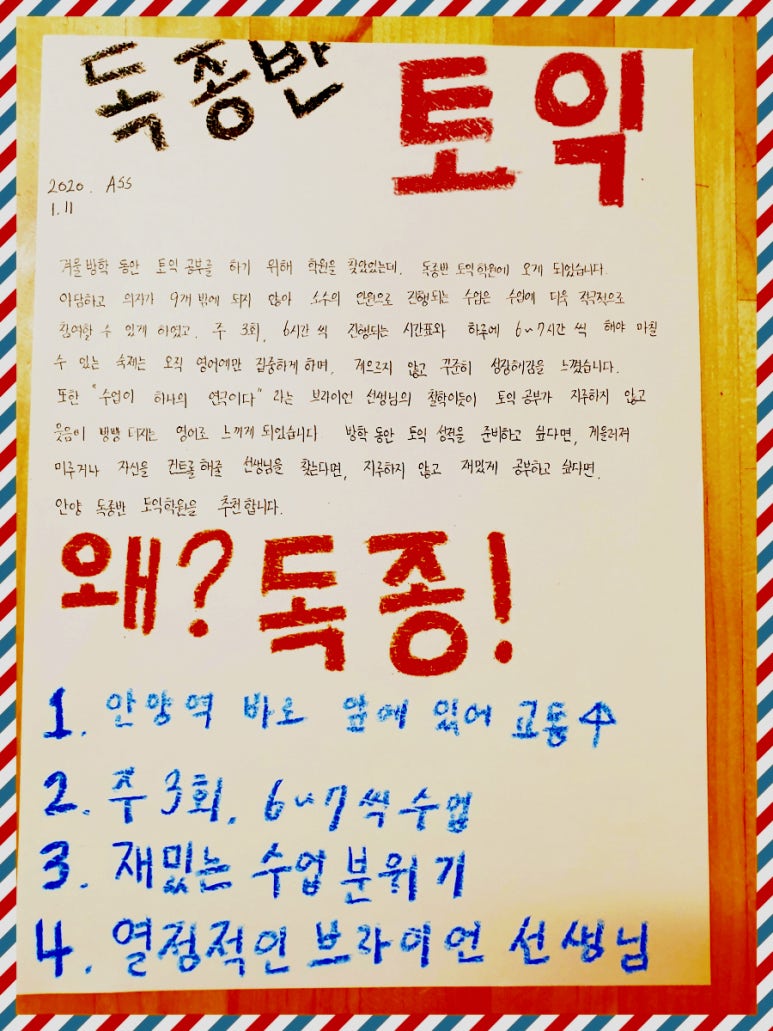 독종반 토익
2020. ASS
1.11
겨울 방학 동안 토익 공부를 하기 위해 학원을 찾았었는데, 독종반 토익학원에 오게 되었습니다.
아담하고 의자가 9개 밖에 되지 않아 소수의 인원으로 진행되는 수업은 수업에 더욱 적극적으로
참여할 수 있게 하였고. 주 3회, 6시간 씩 진행되는 시간표와 하루에 6~7시간 씩 해야 마칠
수 있는 숙제는 오직 영어에만 집중하게 하며, 게으르지 않고 꾸준히 성장해감을 느꼈습니다.
또한 "수업이 하나의 연극이다" 라는 브라이언 선생님의 철학이듯이 토익 공부가 지루하지 않고
웃음이 빵빵 터지는 영어로 느끼게 되었습니다. 방학 동안 토익 성적을 준비하고 싶다면, 게을러져
미루거나 자신을 컨트롤 해줄 선생님을 찾는다면, 지루하지 않고 재밌게 공부하고 싶다면.
안양 독종반 토익학원을 추천합니다.
왜? 독종!
1. 안양역 바로 앞에 있어 교통↑
2. 주 3회. 6~7씩 수업
3. 재밌는 수업 분위기
4. 열정적인 브라이언 선생님